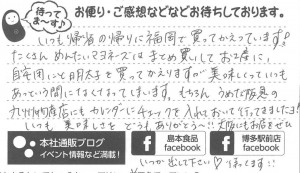 待ってま〜す♪
お便り・ご感想などなどお待ちしております。
いつも帰省の帰りに福岡で買ってかえっています!
たくさんめんたいマヨネーズはまとめ買いしてお土産に、
自宅用にと明太子を買ってかえりますが美味しくっていつも
あっという間になくなってしまいます。もちろんうめだ阪急の
九州物産店にもカレンダーにチェックを入れておいて行ってきました!
いつも美味しさをどうもありがとう!!大阪にもお店をぜひ
いつか出して下さい♡待ってます!!
本社通販ブログ
イベント情報など満載!
島本食品
facebook
博多駅前店
facebook